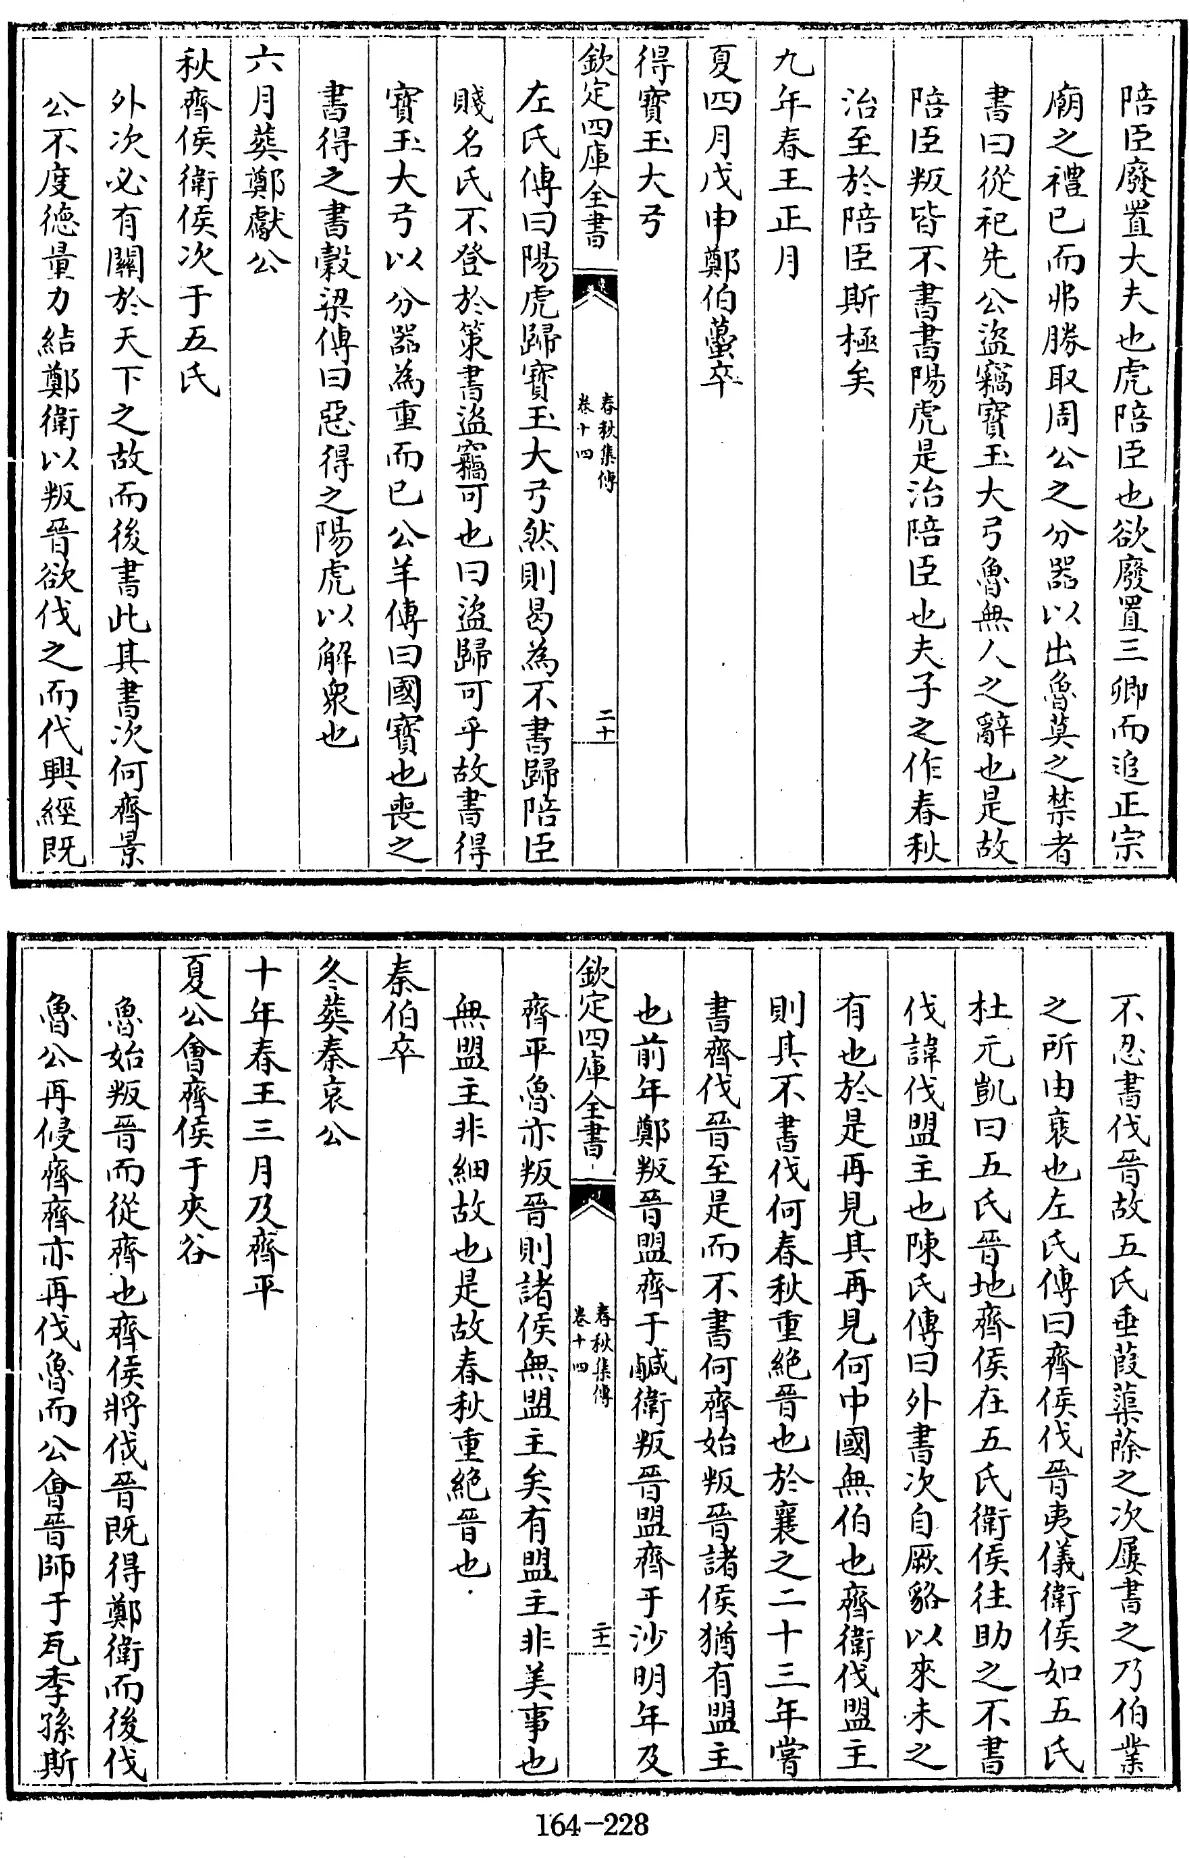 陪臣廢置大夫也虎陪臣也欲廢置三卿而追正宗
廟之禮已而弗勝取周公之分器以出魯莫之禁者
書曰從祀先公盜竊寳玉大弓魯無人之辭也是故
陪臣叛皆不書書陽虎是治陪臣也夫子之作春秋
治至於陪臣斯極矣
九年春王正月
夏四月戊申鄭伯蠆卒
得寳玉大弓
欽定四庫全書
春秋集傳
卷十四
二十
左氏傳曰陽虎歸寳玉大弓然則曷為不書歸陪臣
賤名氏不登於策書盜竊可也曰盜歸可乎故書得
寳玉大弓以分器為重而已公羊傳曰國寳也喪之
書得之書穀梁傳曰惡得之陽虎以解衆也
六月葬鄭獻公
秋齊侯衛侯次于五氏
外次必有關於天下之故而後書此其書次何齊景
公不度德量力結鄭衛以叛晉欲伐之而代興經既
不忍書伐晉故五氏垂葭蕖蒢之次屢書之乃伯業
之所由衰也左氏傳曰齊侯伐晉夷儀衛侯如五氏
杜元凱曰五氏晉地齊侯在五氏衛侯往助之不書
伐諱伐盟主也陳氏傳曰外書次自厥貉以來未之
有也於是再見其再見何中國無伯也齊衛伐盟主
則其不書伐何春秋重絶晉也於襄之二十三年嘗
書齊伐晉至是而不書何齊始叛晉諸侯猶有盟主
也前年鄭叛晉盟齊于鹹衛叛晉盟齊于沙明年及
欽定四庫全書
春秋集傳
卷十四
二十一
齊平魯亦叛晉則諸侯無盟主矣有盟主非美事也
無盟主非細故也是故春秋重絶晉也
秦伯卒
冬葬秦哀公
十年春王三月及齊平
夏公會齊侯于夾谷
魯始叛晉而從齊也齊侯將伐晉既得鄭衛而後伐
魯公再侵齊齊亦再伐魯而公會晉師于瓦季孫斯
164-228